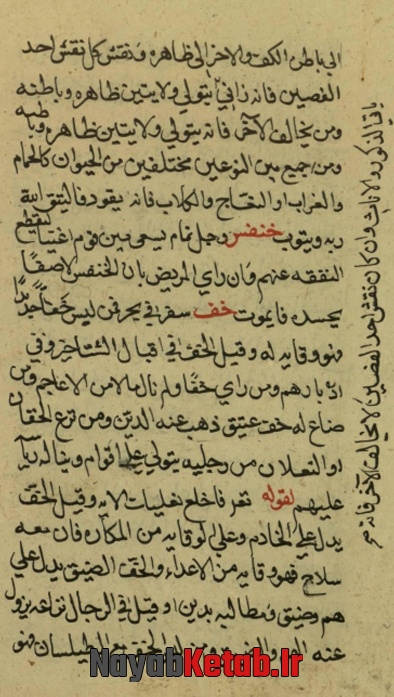 الي باطن الكف والاخر الي ظاهره ونقش كل نقش احد
الفصين فانه زاني يتولي ولايتين ظاهره وباطنه
ومن يخالف الآخر فانه يتولي ولايتين ظاهره وباطنه
ومن جمع بين النوعين مختلفين من الحيوان كالحمام
والغراب او النعاج والكلاب فانه يقود فاليتق الله
ربه ويتوب خنفس رجل تمام يسعي بين قوم اغنيا لينقطع
النفقه عنهم وان راي المريض بان الخنفس لاصقا
بجسده فانه يموت خف سفر في بحر فمن لبس خفا جديدا
فهو وقايه له وقيل الخف في اقبال الشتا خير وفي
ادباره هم ومن راي خفا ولم نال مالا من الاعاجم ومن
ضاع له خف عتيق ذهب عنه الدين ومن نزع الخفان
او النعلان من رجليه يتولي علي اقوام ويناله
عليهم لقوله تعر فاخلع نعليك الايه وقيل الخف
يدل علي الخادم وعلي الوقايه من المكاره فان معه
سلاح فهو وقايه من الاعداء والخف الضيق يدل علي
هم وضيق ومطالبه بدين او قيل في الرجال نزاعه يزول
عنه الهم والضيق ومن لبس الخف مع الطيلسان فهو
باقي المذكور والاناث وان كان نقش احد الفصين لا يخالف الآخر فانه
NayabKetab.Ir